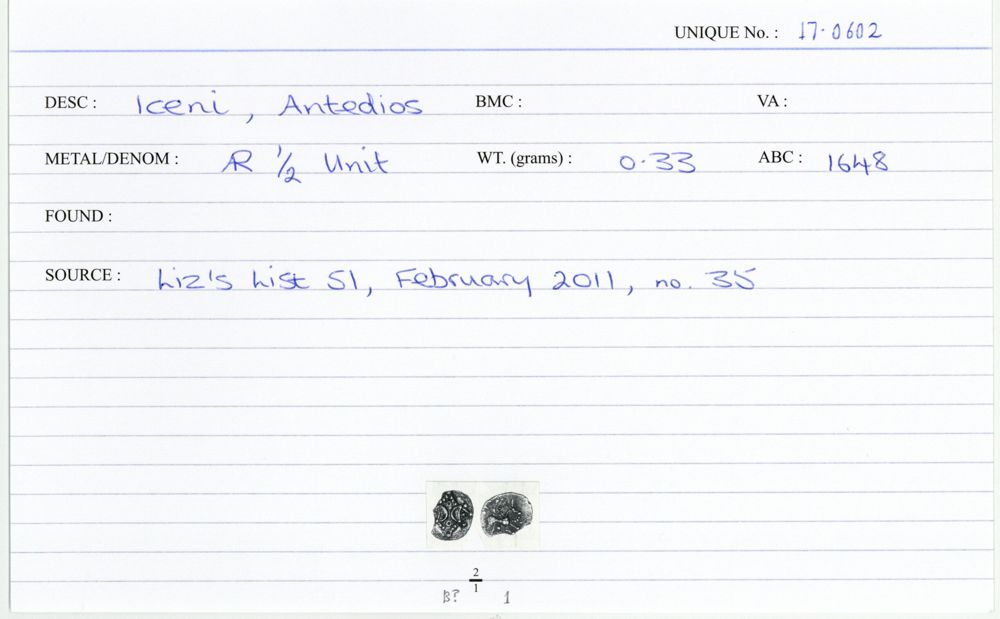 UNIQUE No. : 17·0602
DESC : Iceni, Antedios BMC : VA :
METAL/DENOM : AR 1/2 Unit WT. (grams) : 0·33 ABC : 1648
FOUND :
SOURCE : Liz's List 51, February 2011, no. 35
2
1
B? 1